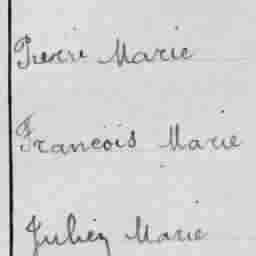 Pierre Marie
François Marie
Julien Marie